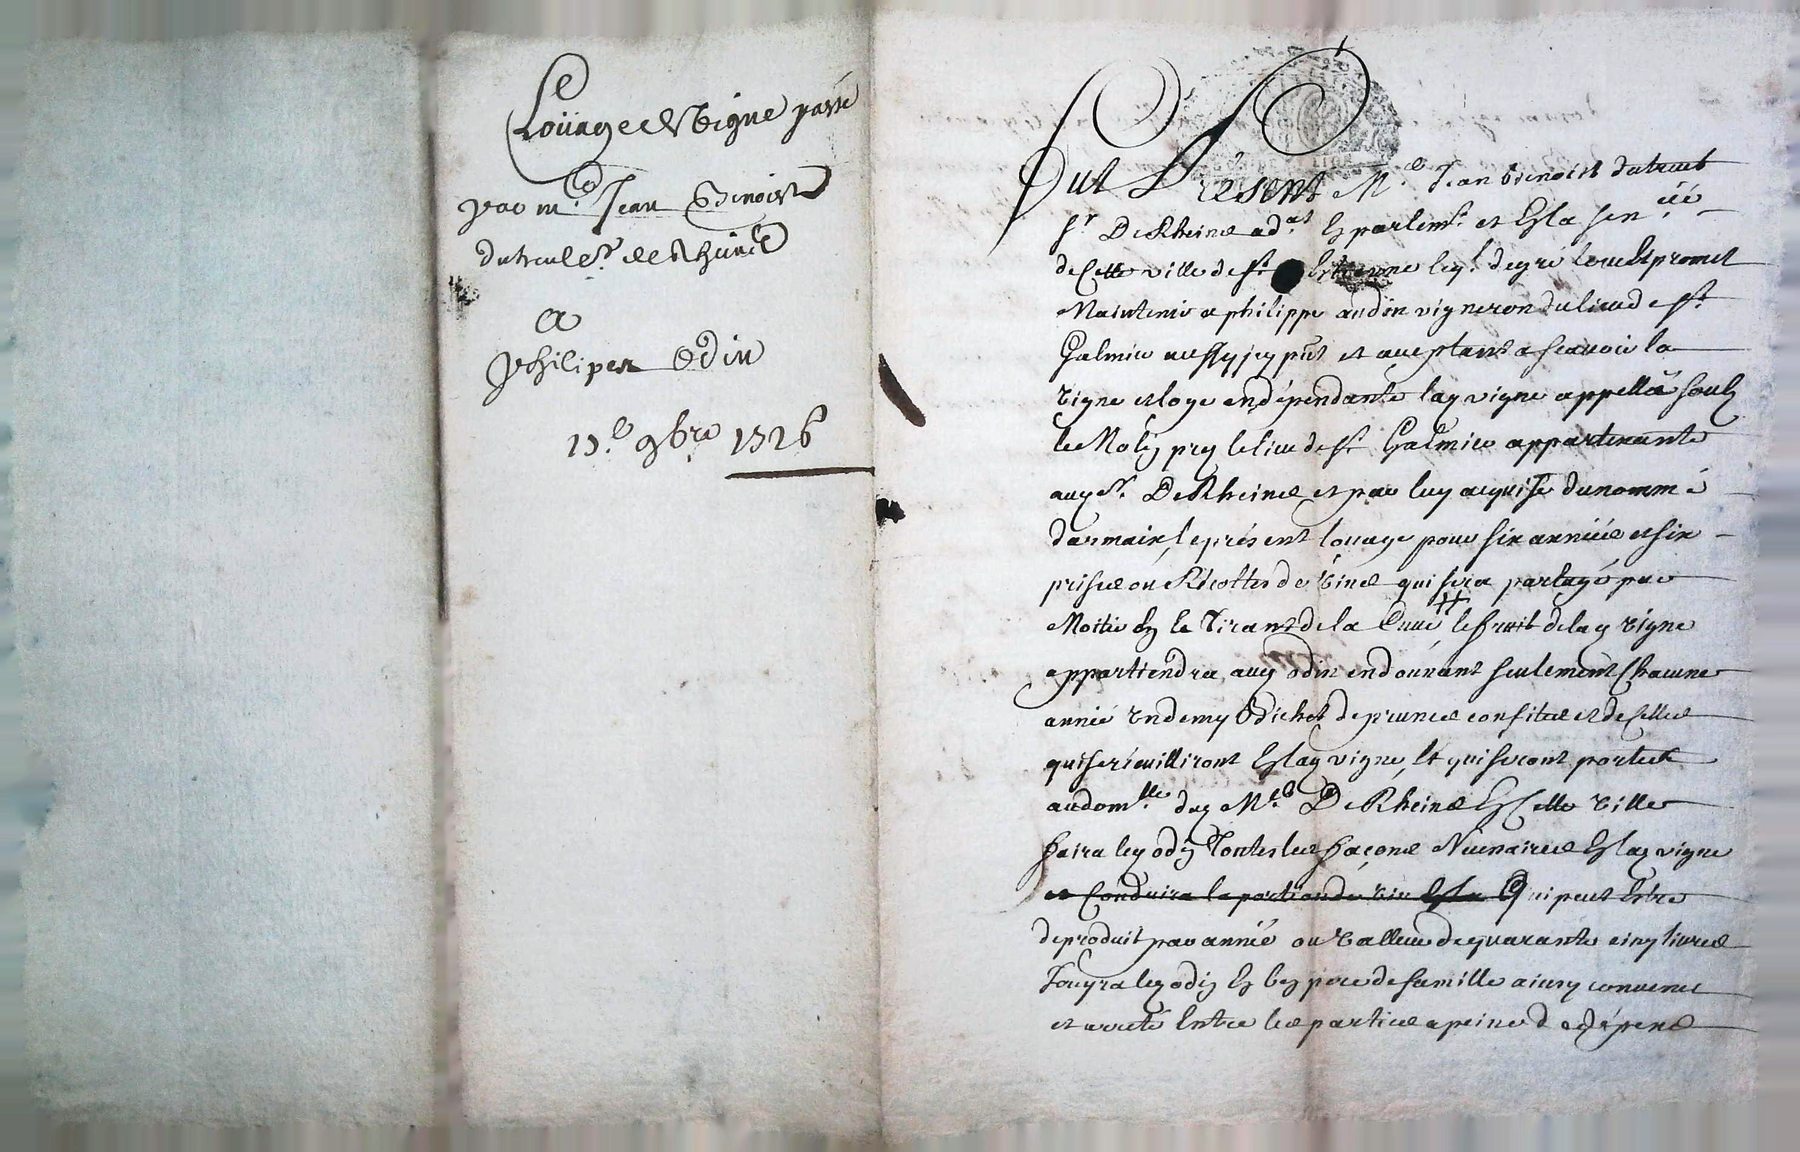 Loüage de Vigne passé
par m.e Jean Benoist
dutreul s.r de Rheins
a
philipes Odin
13.e 9bre 1726
Fut Présent M.e Jean benoist dutreul
s.r DeRheins ad.at En parlem.t et En la sen.ée
de Cette ville de S.t Estienne leq.l de gré loue et promet
Maintenir a philippe audin vigneron du lieu de S.t
Galmier aussy icy p.nt et aceptant a scavoir la
vigne et loge en dépendante lad vigne appellée soub
le Molin prez le lieu de S.t Galmier appartenante
aud s.r DeRheins et par luy acquise du nommé
darmain, le présent loüage pour six années et six
prises ou Récoltes de vins qui sera partagé par
Moitié En le Tirant de la Cuve, le fruit de lad vigne
appartiendra aud odin en donnant seulement Chacune
année un demy bichet de prunes confites et de Celles
qui se récuilliront En lad vigne, Et qui seront portées
au dom.lle dud M.e DeRheins En Cette ville
faira led odin Toutes les façons Nécessaires En lad vigne
et Conduira la portion de vin Qui peut Estre
de produit par année ou valleur de quarante cinq livres
Jouyra led odin En bon pere de famille ainsy convenu
et arreté Entre les parties a peine de dépens